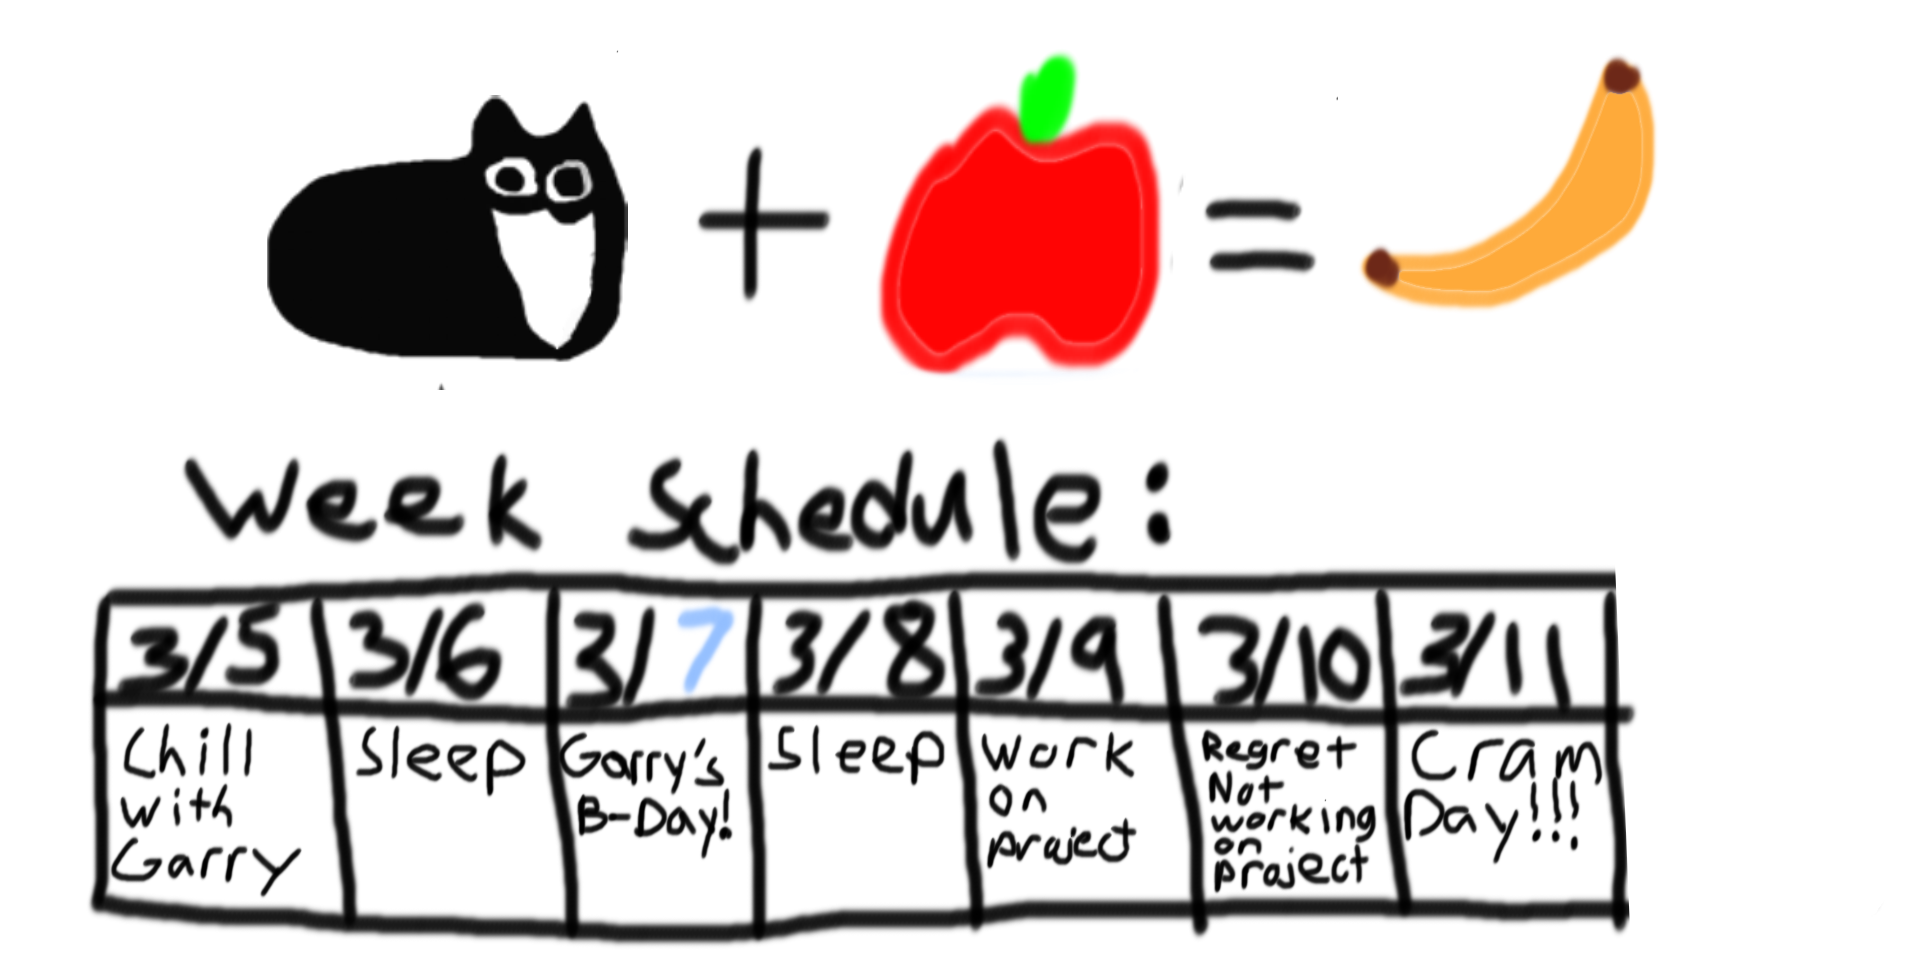 + =
Week Schedule:
3/5 3/6 3/7 3/8 3/9 3/10 3/11
Chill
with
Garry
Sleep
Garry's
B-Day!
Sleep
Work
on
project
Regret
Not
working
on
project
Cram
Day!!!